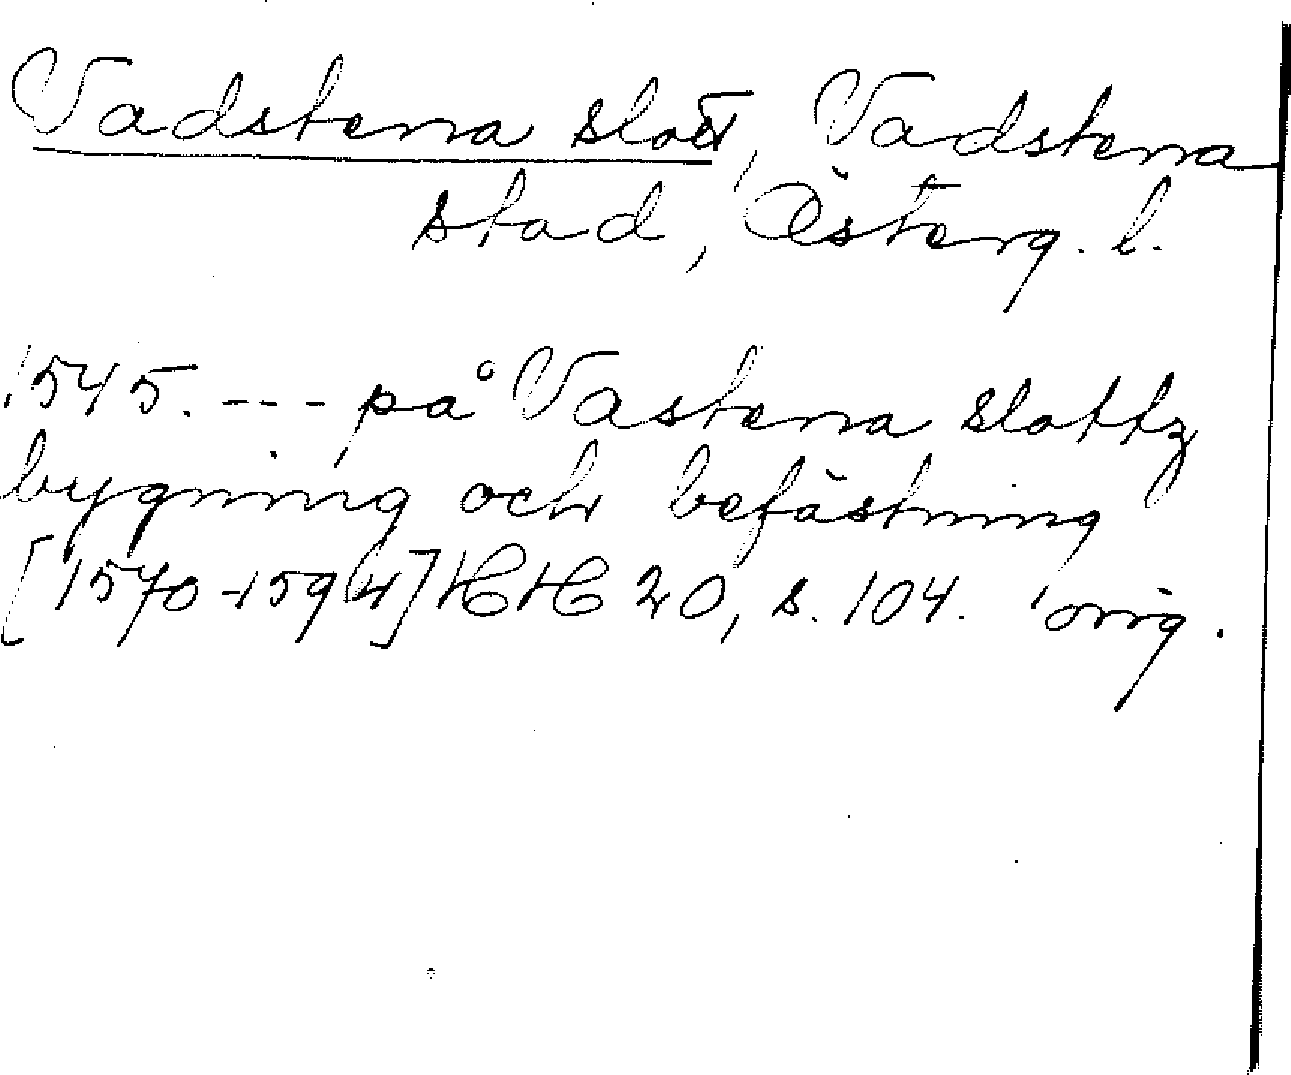 Vadstena slott, Vadstena
stad, Österg. l.
1545. --- på Vastena slottz
bygning och befästning
[1570-1594] HH 20, s. 104. orig.